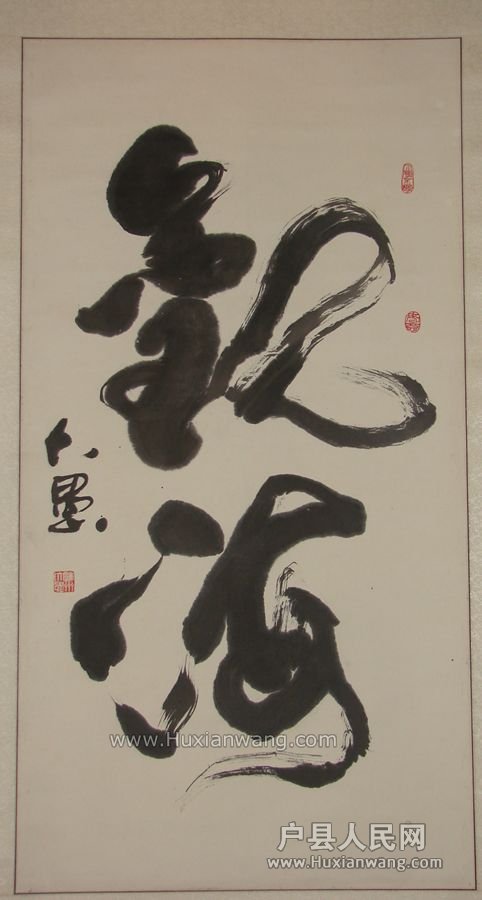 觀海
大愚
www.Huxianwang.com
户县人民网
www.Huxianwang.com